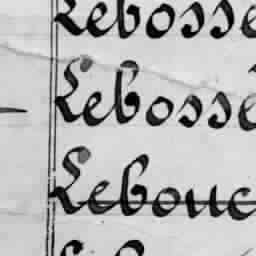 Lebossé
Lebossé
Lebouc